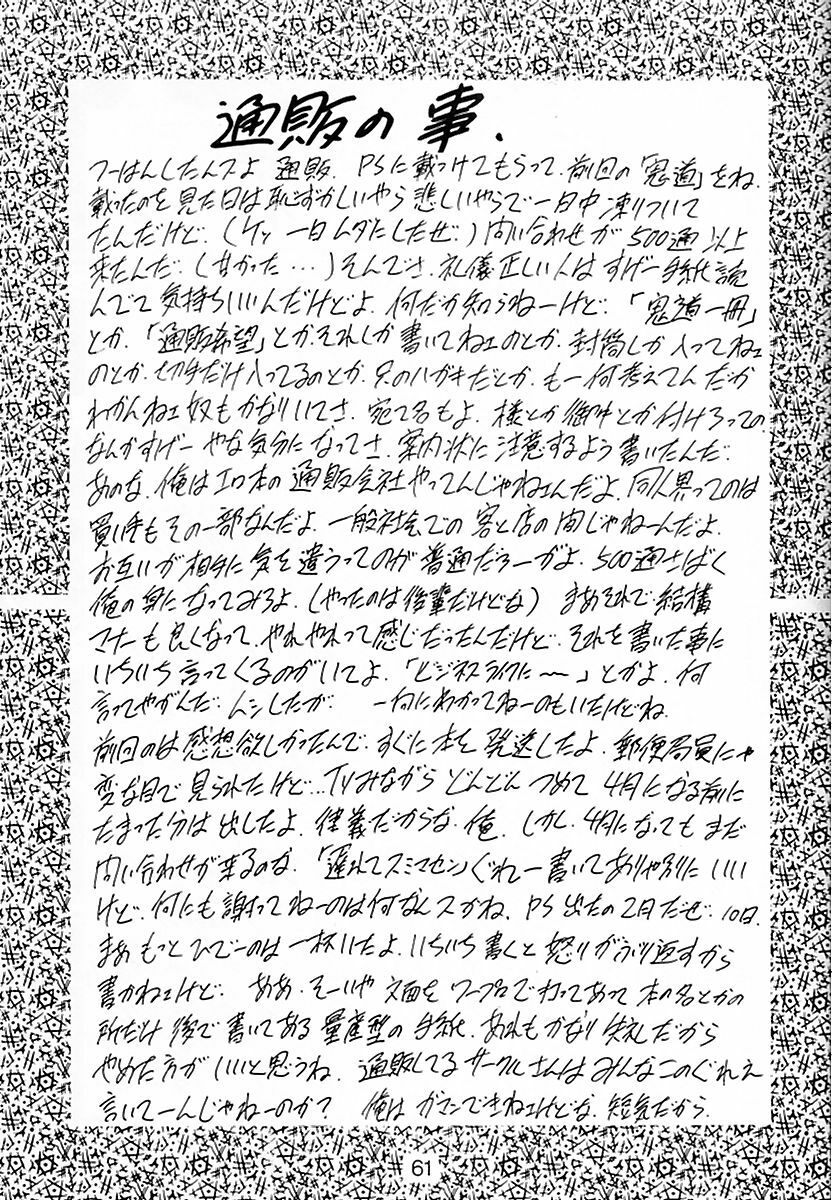 通販の事、
つーはんしたんスよ 通販、PSに載っけてもらって、前回の「鬼道」をね、
載ったのを見た日は恥ずかしいやら悲しいやらで一日中凍りついて
たんだけど、(ケッ 一日ムダにしたぜ、) 問い合わせが500通以上
来たんだ、(甘かった…) そんでさ、礼儀正しい人はすげー手紙読
んでて気持ちいいんだけどよ、何だか知らねーけど、「鬼道一冊」
とか、「通販希望」とかそれしか書いてねェのとか、封筒しか入ってねェ
のとか、切手だけ入ってるのとか、只のハガキだとか、もー何考えてんだか
わかんねェ奴もかなりいてさ、宛て名もよ、様とか御中とか付けろっての、
なんかすげーやな気分になってさ、案内状に注意するよう書いたんだ、
あのな、俺はエロ本の通販会社やってんじゃねェんだよ、同人界ってのは
買い手もその一部なんだよ、一般社会での客と店の間じゃねーんだよ、
お互いが相手に気を遣うってのが普通だろーがよ、500通さばく
俺の身になってみろよ、(やったのは後輩だけどな) まあそれで結構
マナーも良くなって、やれやれって感じだったんだけど、それを書いた事に
いちいち言ってくるのがいてよ、「ビジネスライクに〜」とかよ、何
言ってやがんだ、ムシしたが、 一向にわかってねーのもいたけどね、
前回のは感想欲しかったんで、すぐに本を発送したよ、郵便局員にゃ
変な目で見られたけど…TVみながらどんどんつめて4月になる前に
たまった分は出したよ、律義だからな、俺、しかし、4月になってもまだ
問い合わせが来るのな、「遅れてスミマセン」ぐれー書いてありゃ別にいい
けど、何にも謝ってねーのは何なんスかね、PS出たの2月だぜ、10日、
まあもっとひでーのは一杯いたよ、いちいち書くと怒りがぶり返すから
書かねェけど、 ああ、そーいや文面をワープロで打ってあって本の名とかの
所だけ後で書いてある量産型の手紙、あれもかなり失礼だから
やめた方がいいと思うね、通販してるサークルさんはみんなこのぐれえ
言いてーんじゃねーのか? 俺はガマンできねェけどな、短気だから、
61